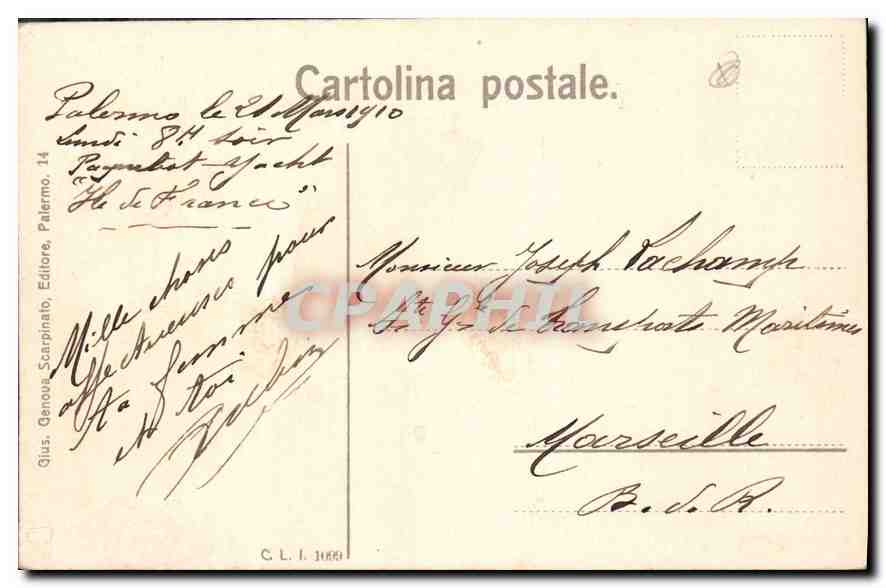 Cartolina postale.
Palermo le 21 Mars 1910
Lundi 8H soir
Paquebot-Yacht
"Ile de France"
Mille choses
affectueuses pour
ta femme
et toi.
Monsieur Joseph Pachamp
Sté Gle de transports Maritimes
Marseille
B. d. R.
Gius. Genoua Scarpinato, Editore, Palermo. 14
C. L. I. 1099
CPARAMA